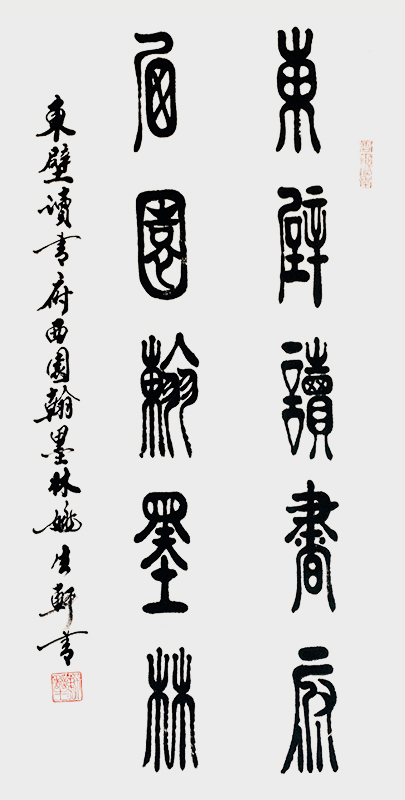 東壁讀書府
西園翰墨林
東壁讀書府西園翰墨林 生軒書